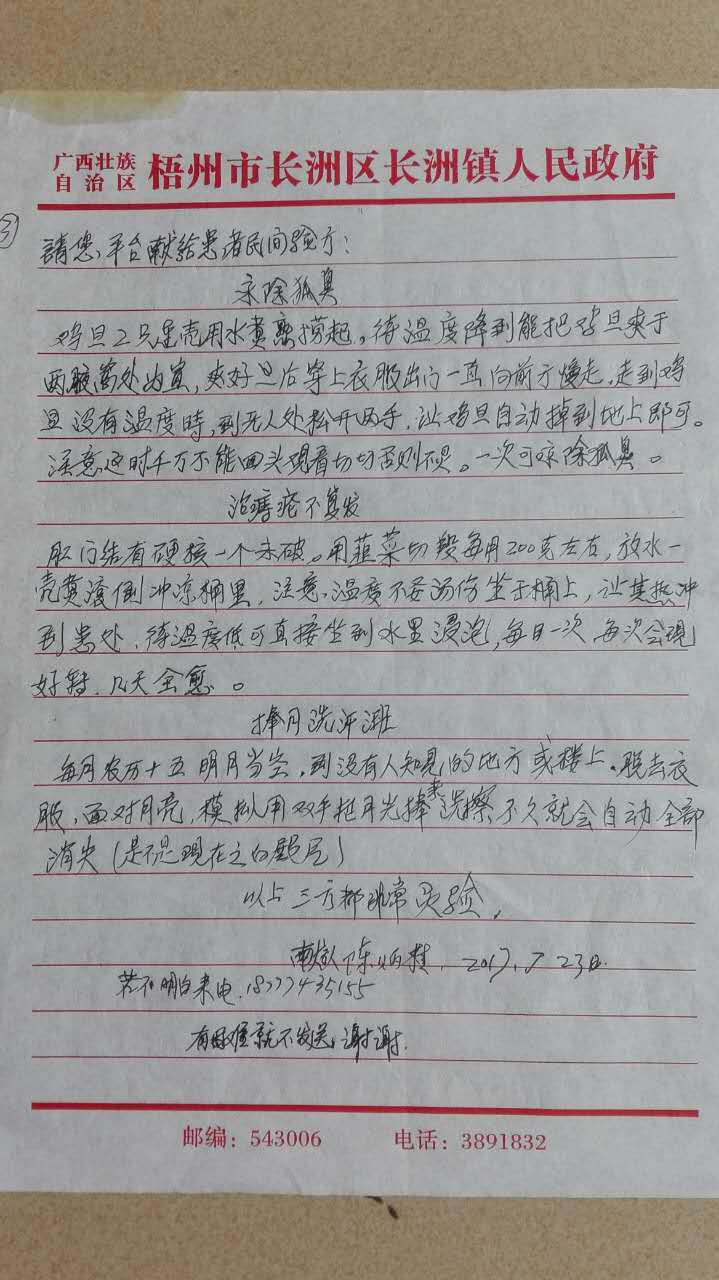 广西壮族
自治区 梧州市长洲区长洲镇人民政府
3
請您平台献给患者民间验方：
永除狐臭
鸡旦2只连壳用水煮熟捞起。待温度降到能把鸡旦夹于
两腋窝处为宜，夹好旦后穿上衣服出门一直向前方慢走，走到鸡
旦没有温度時，到无人处松开两手，让鸡旦自动掉到地上即可。
注意这时千万不能回头观看切切否则不灵。一次可永除狐臭。
治痔疮不复发
肛门结有硬核一个未破。用韭菜切段每用200克左右，放水一
壳煮滚倒冲凉桶里，注意，温度不要汤伤坐于桶上，让其热冲
到患处，待温度低可直接坐到水里浸泡，每日一次 每次会現
好轉，几天全愈。
捧月洗汗斑
每月农历十五明月当空，到没有人知見的地方或楼上，脱去衣
服，面对月亮，模拟用双手把月光捧来洗擦不久就会自动全部
消失（是不是現在之白癜风）
以上三方都非常灵验，
陈炳桂，2017、7 23日
若不明白来电.18777435155
有困难就不发送，谢谢.
邮编：543006 电话：3891832